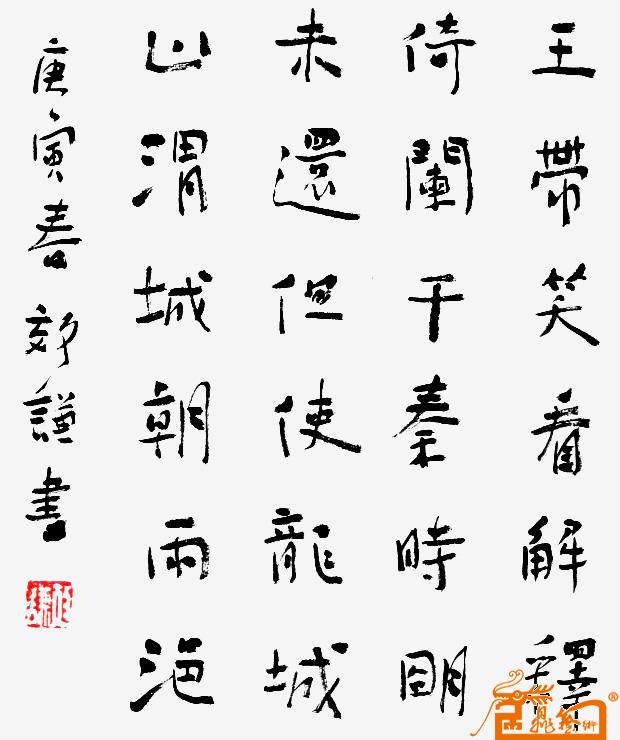 王帶笑看解釋
倚闌干秦時明
未還但使龍城
山渭城朝雨浥
庚寅春郊謙書